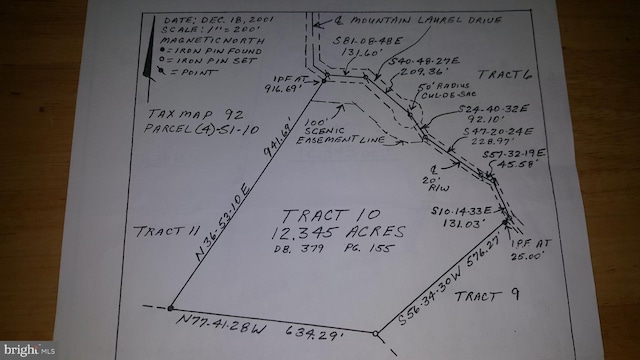 DATE: DEC. 18, 2001
SCALE: 1"= 200'
MAGNETIC NORTH
● = IRON PIN FOUND
○ = IRON PIN SET
= POINT
TAX MAP 92
PARCEL (4)-51-10
℄ MOUNTAIN LAUREL DRIVE
S81-08-48E
131.60'
S40-48-27E
209.36'
TRACT 6
IPF AT
916.69'
50' RADIUS
CUL-DE-SAC
S24-40-32E
92.10'
S47-20-24E
228.97'
S57-32-19E
45.58'
100'
SCENIC
EASEMENT LINE
℄
20'
R/W
941.69'
N36-53-10E
TRACT 11
TRACT 10
12.345 ACRES
DB. 379 PG. 155
S10-14-33E
131.03'
IPF AT
25.00'
S56-34-30W 576.27'
TRACT 9
N77-41-28W 634.29'
bright MLS